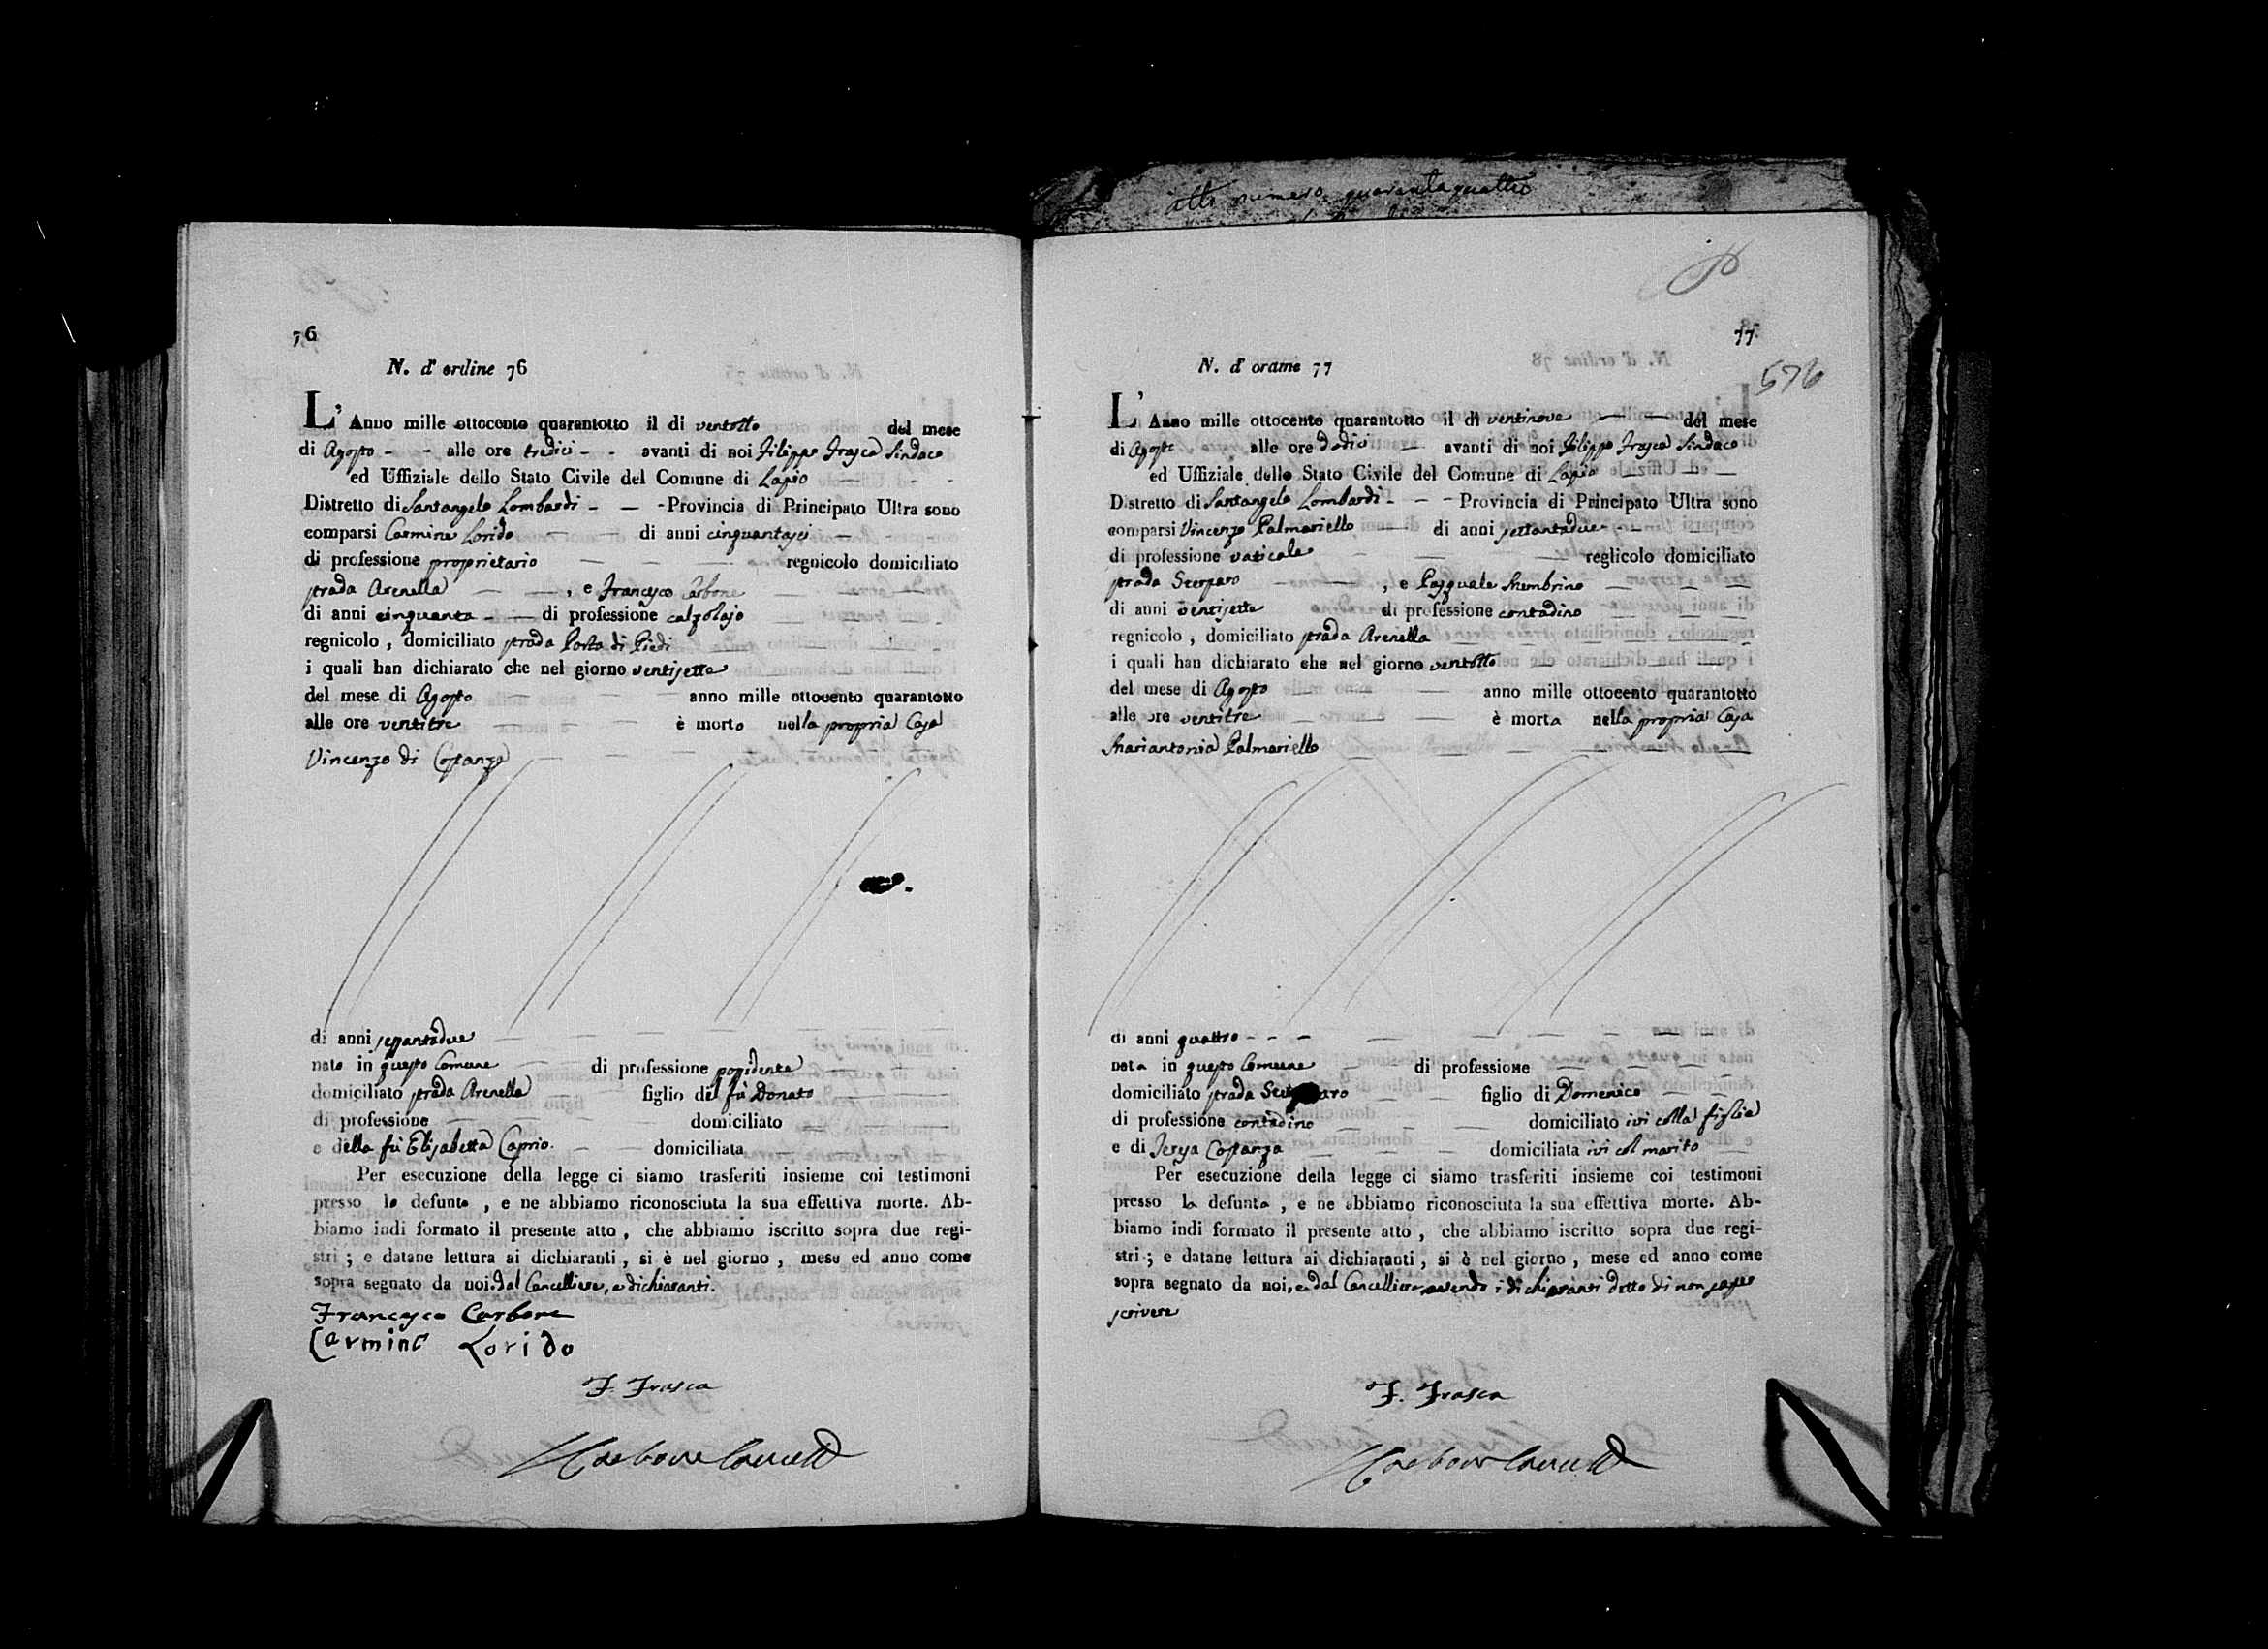 atto numero quarantaquattro
76
N. d' ordine 76
L' Anno mille ottocento quarantotto il di ventotto del mese
di Agosto - - alle ore tredici - - avanti di noi Filippo Frasca Sindaco
ed Uffiziale dello Stato Civile del Comune di Lapio
Distretto di Santangelo Lombardi - - - Provincia di Principato Ultra sono
comparsi Carmine Lorido di anni cinquantasei
di professione proprietario regnicolo domiciliato
strada Arenella , e Francesco Carbone
di anni cinquanta - - di professione calzolajo
regnicolo , domiciliato strada Porta di Piedi
i quali han dichiarato che nel giorno ventisette
del mese di Agosto anno mille ottocento quarantotto
alle ore ventitre è morto nella propria Casa
Vincenzo di Costanzo
di anni settantadue
nato in questo Comune di professione possidente
domiciliato strada Arenella figlio del fù Donato
di professione domiciliato
e della fù Elisabetta Caprio. domiciliata
Per esecuzione della legge ci siamo trasferiti insieme coi testimoni
presso lo defunto , e ne abbiamo riconosciuta la sua effettiva morte. Ab-
biamo indi formato il presente atto , che abbiamo iscritto sopra due regi-
stri ; e datane lettura ai dichiaranti , si è nel giorno , mese ed anno come
sopra segnato da noi. dal Cancelliere, e dichiaranti.
Francesco Carbone
Carmine Lorido
F. Frasca
Carbone
77
576
N. d' orame 77
L' Anno mille ottocento quarantotto il di ventinove del mese
di Agosto alle ore dodici avanti di noi Filippo Frasca Sindaco
ed Uffiziale dello Stato Civile del Comune di Lapio
Distretto di Santangelo Lombardi - - - Provincia di Principato Ultra sono
comparsi Vincenzo Palmariello di anni settantadue
di professione vaticale reglicolo domiciliato
strada Sterparo , e Pasquale Membrino
di anni ventisette di professione contadino
regnicolo , domiciliato strada Arenella
i quali han dichiarato che nel giorno ventotto
del mese di Agosto anno mille ottocento quarantotto
alle ore ventitre è morta nella propria Casa
Mariantonia Palmariello
di anni quattro - - -
nata in questo Comune di professione
domiciliato strada figlio di Domenico
di professione contadino domiciliato ivi colla figlia
e di Teresa Costanza domiciliata ivi col marito
Per esecuzione della legge ci siamo trasferiti insieme coi testimoni
presso la defunta , e ne abbiamo riconosciuta la sua effettiva morte. Ab-
biamo indi formato il presente atto , che abbiamo iscritto sopra due regi-
stri ; e datane lettura ai dichiaranti , si è nel giorno , mese ed anno come
sopra segnato da noi, e dal Cancelliere avendo i dichiaranti detto di non saper
scrivere
F. Frasca
Carbone